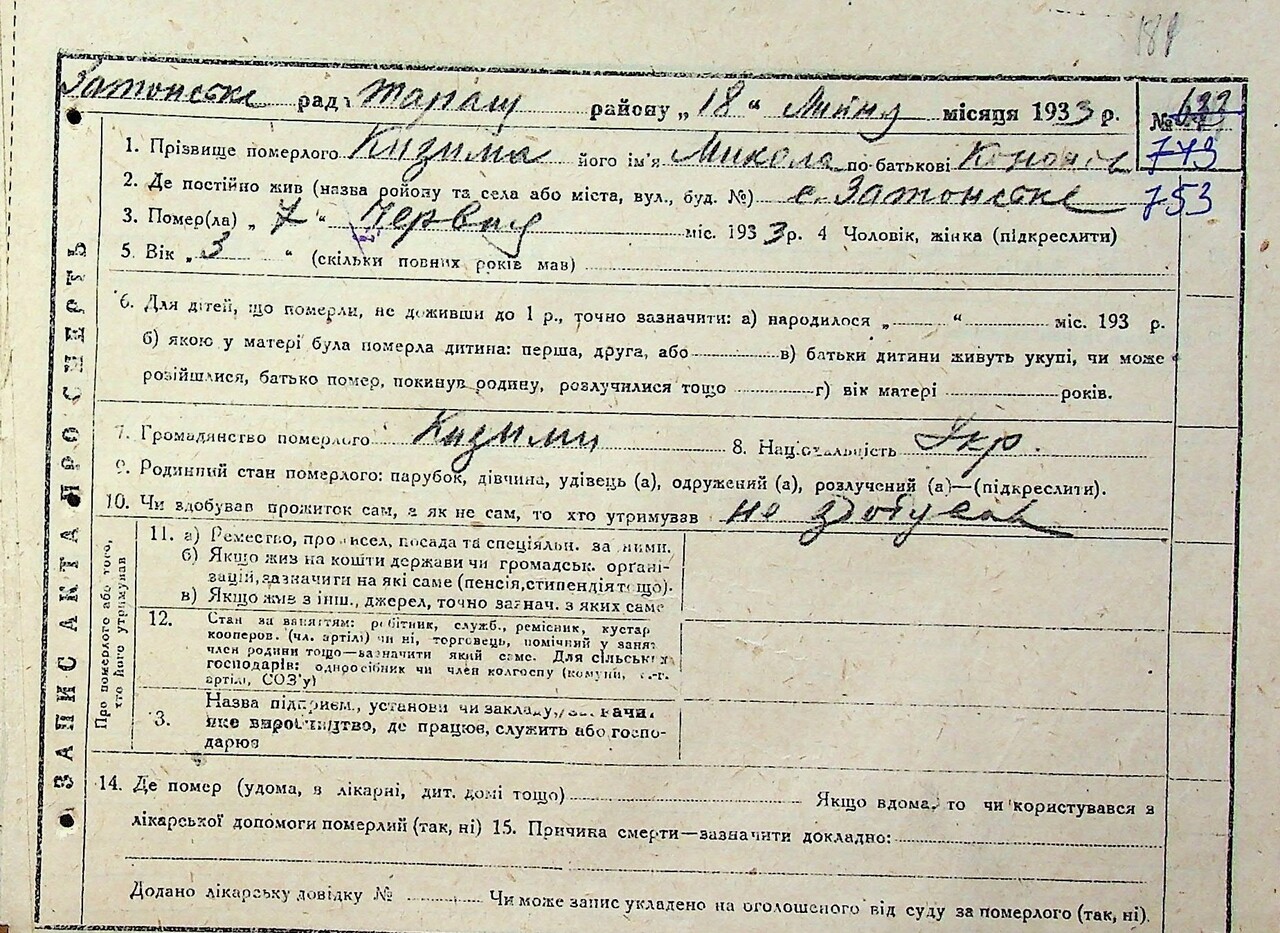 189
Затонське рад. Таращ району „18“ Липня місяця 1933 р.
№ 773
753
1. Прізвище померлого Кизима його ім'я Микола по-батькові
2. Де постійно жив (назва району та села або міста, вул., буд. №) с. Затонське
3. Помер(ла) „7“ Червня міс. 1933 р. 4 Чоловік, жінка (підкреслити)
5. Вік „3“ (скільки повних років мав)
6. Для дітей, що померли, не доживши до 1 р., точно зазначити: а) народилося „ “ міс. 193 р.
б) якою у матері була померла дитина: перша, друга, або в) батьки дитини живуть укупі, чи може
розійшлися, батько помер, покинув родину, розлучилися тощо г) вік матері років.
7. Громадянство померлого 8. Національність Укр.
9. Родинний стан померлого: парубок, дівчина, удівець (а), одружений (а), розлучений (а)—(підкреслити).
10. Чи здобував прожиток сам, а як не сам, то хто утримував не здобував
Про померлого або того, хто його утримував
11. а) Ремество, промисел, посада та спеціяльн. за ними.
б) Якщо жив на кошти держави чи громадськ. орґані-
зацій, зазначити на які саме (пенсія, стипендія тощо).
в) Якщо жив з інш., джерел, точно зазнач. з яких саме
12. Стан за заняттям: робітник, служб., ремісник, кустар
кооперов. (чл. артілі) чи ні, торговець, помічний у занят.
член родини тощо—зазначити який саме. Для сільських
господарів: одноосібник чи член колгоспу (комуни, с.-г.
артілі, СОЗ'у)
13. Назва підприєм., установи чи закладу, зазначи.
яке виробництво, де працює, служить або госпо-
дарює
14. Де помер (удома, в лікарні, дит. домі тощо) Якщо вдома, то чи користувався з
лікарської допомоги померлий (так, ні) 15. Причина смерти—зазначити докладно:
Додано лікарську довідку № Чи може запис укладено на оголошеного від суду за померлого (так, ні).
ЗАПИС АКТА ПРО СМЕРТЬ